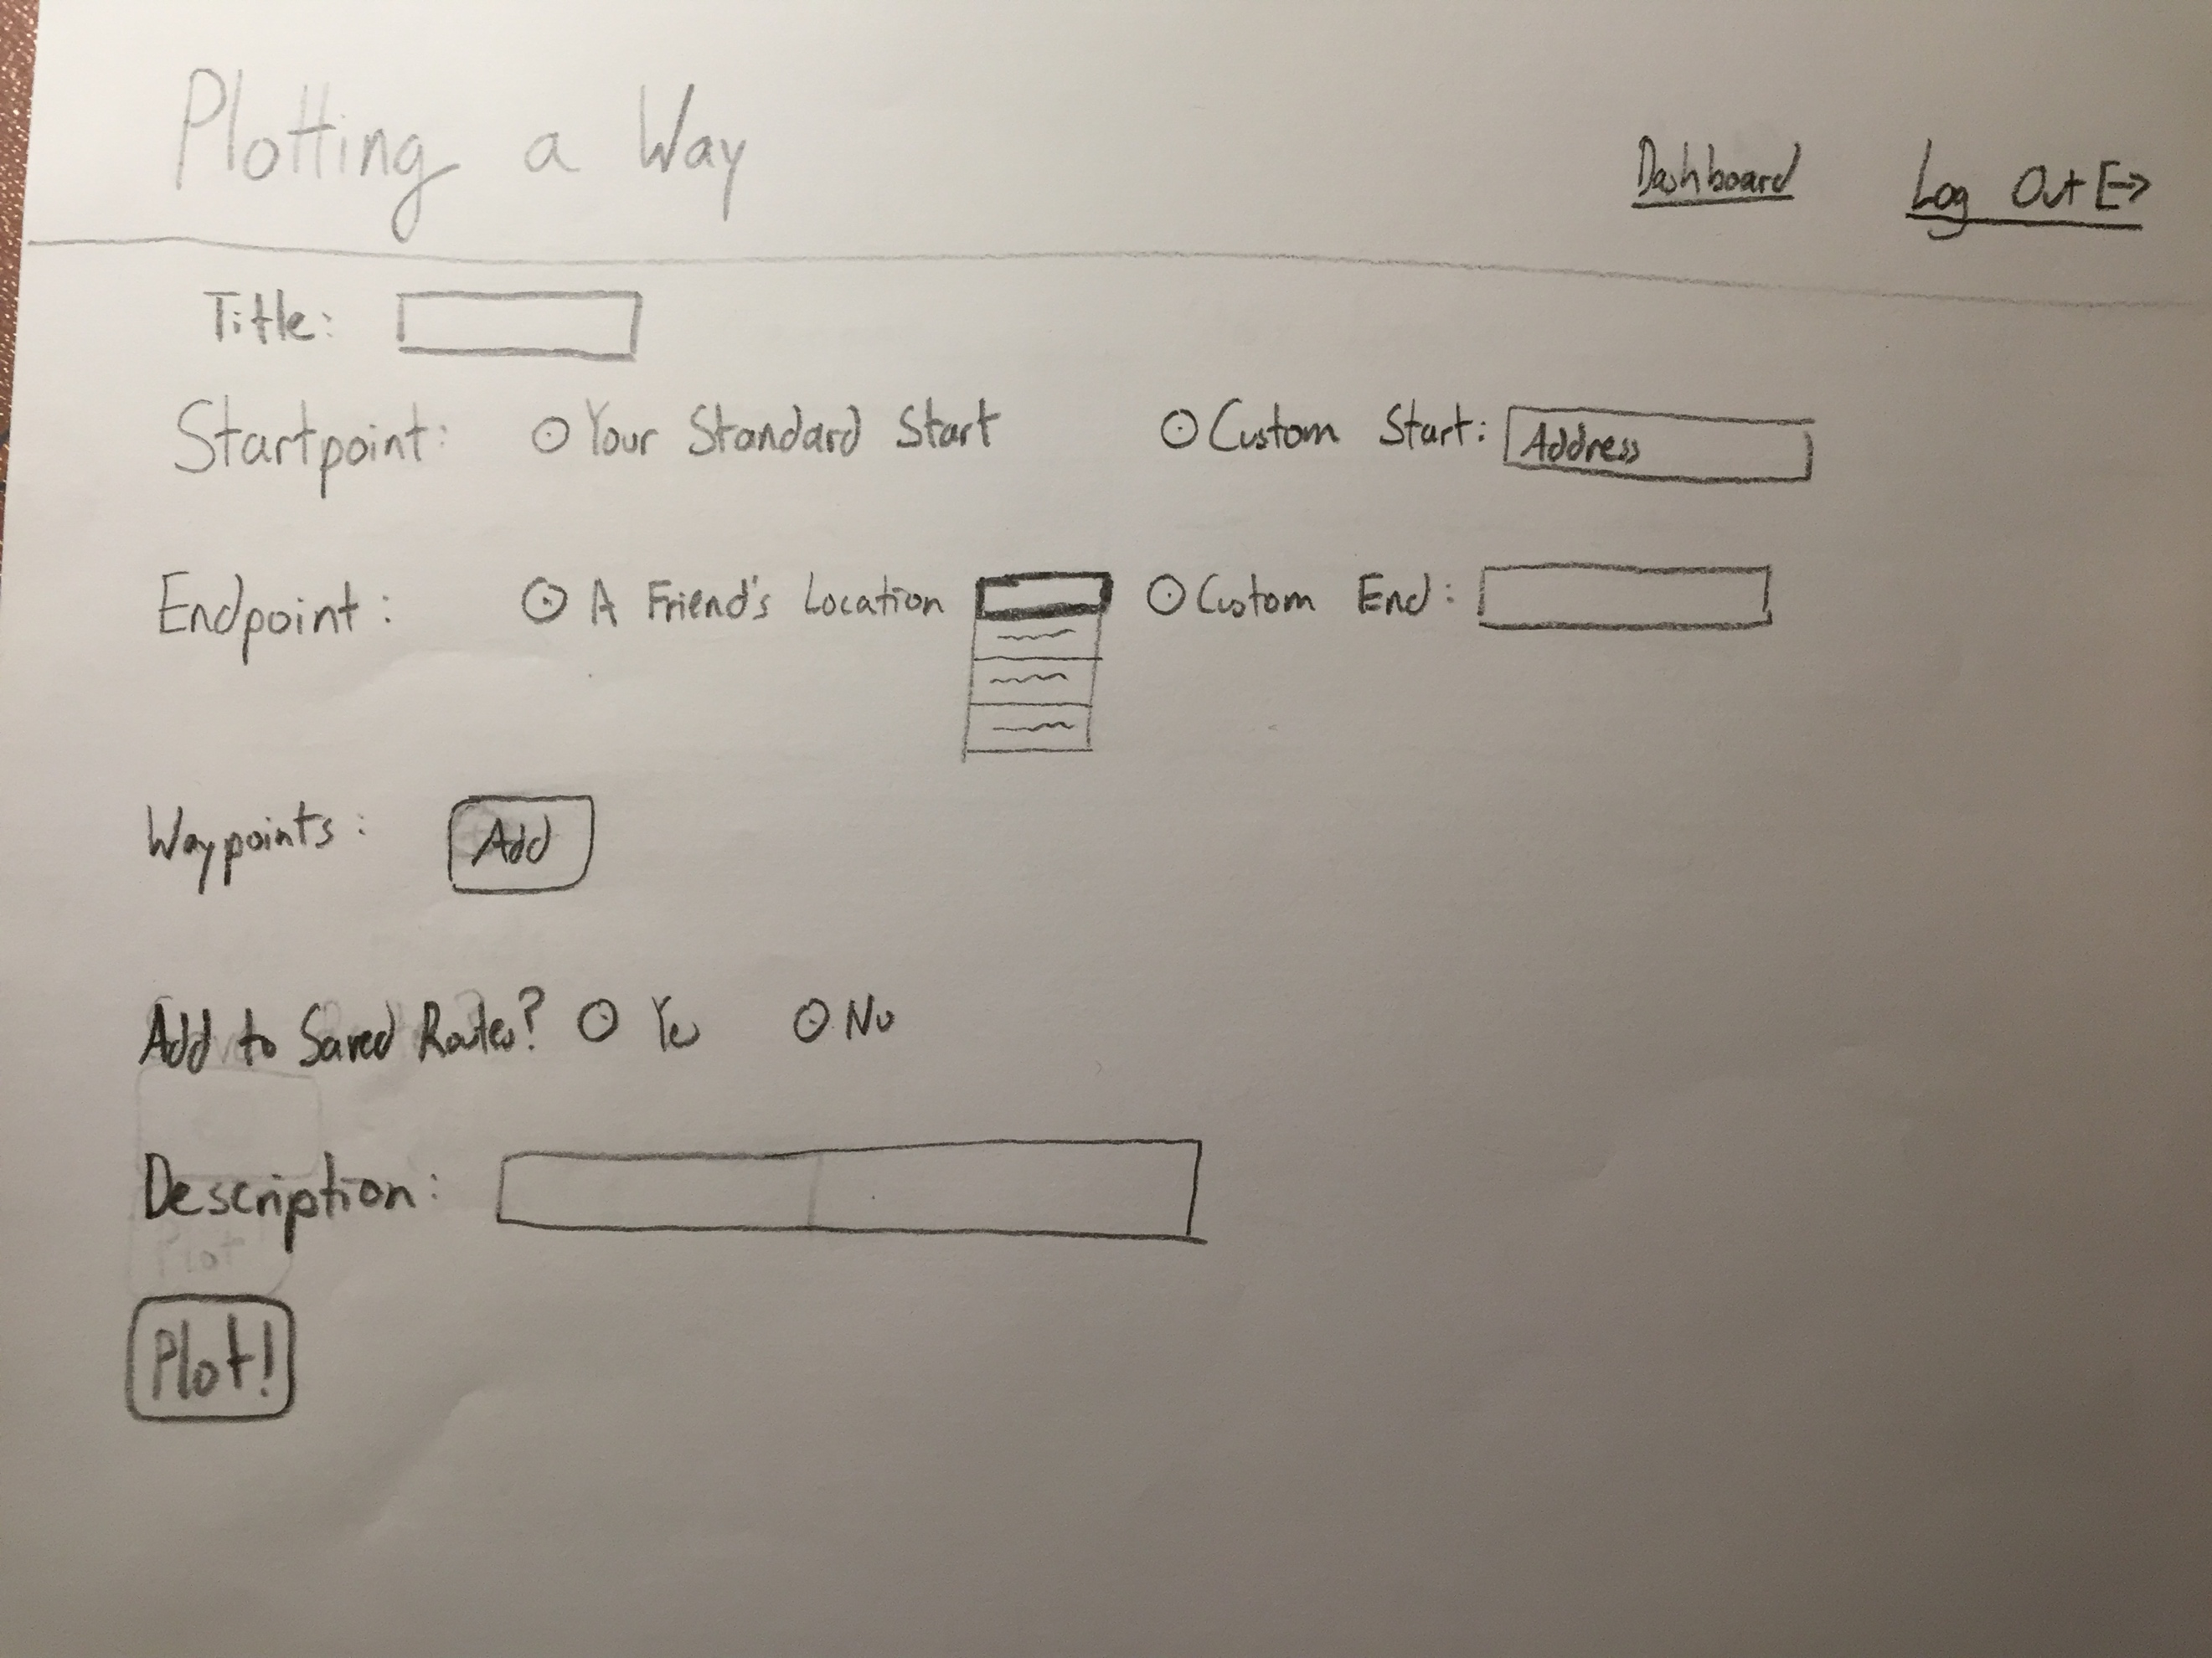 Plotting a Way
Dashboard
Log Out
Title:
Startpoint: Your Standard Start Custom Start: Address
Endpoint: A Friend's Location Custom End:
Waypoints: Add
Add to Saved Routes? Yes No
Description:
Plot
Plot!